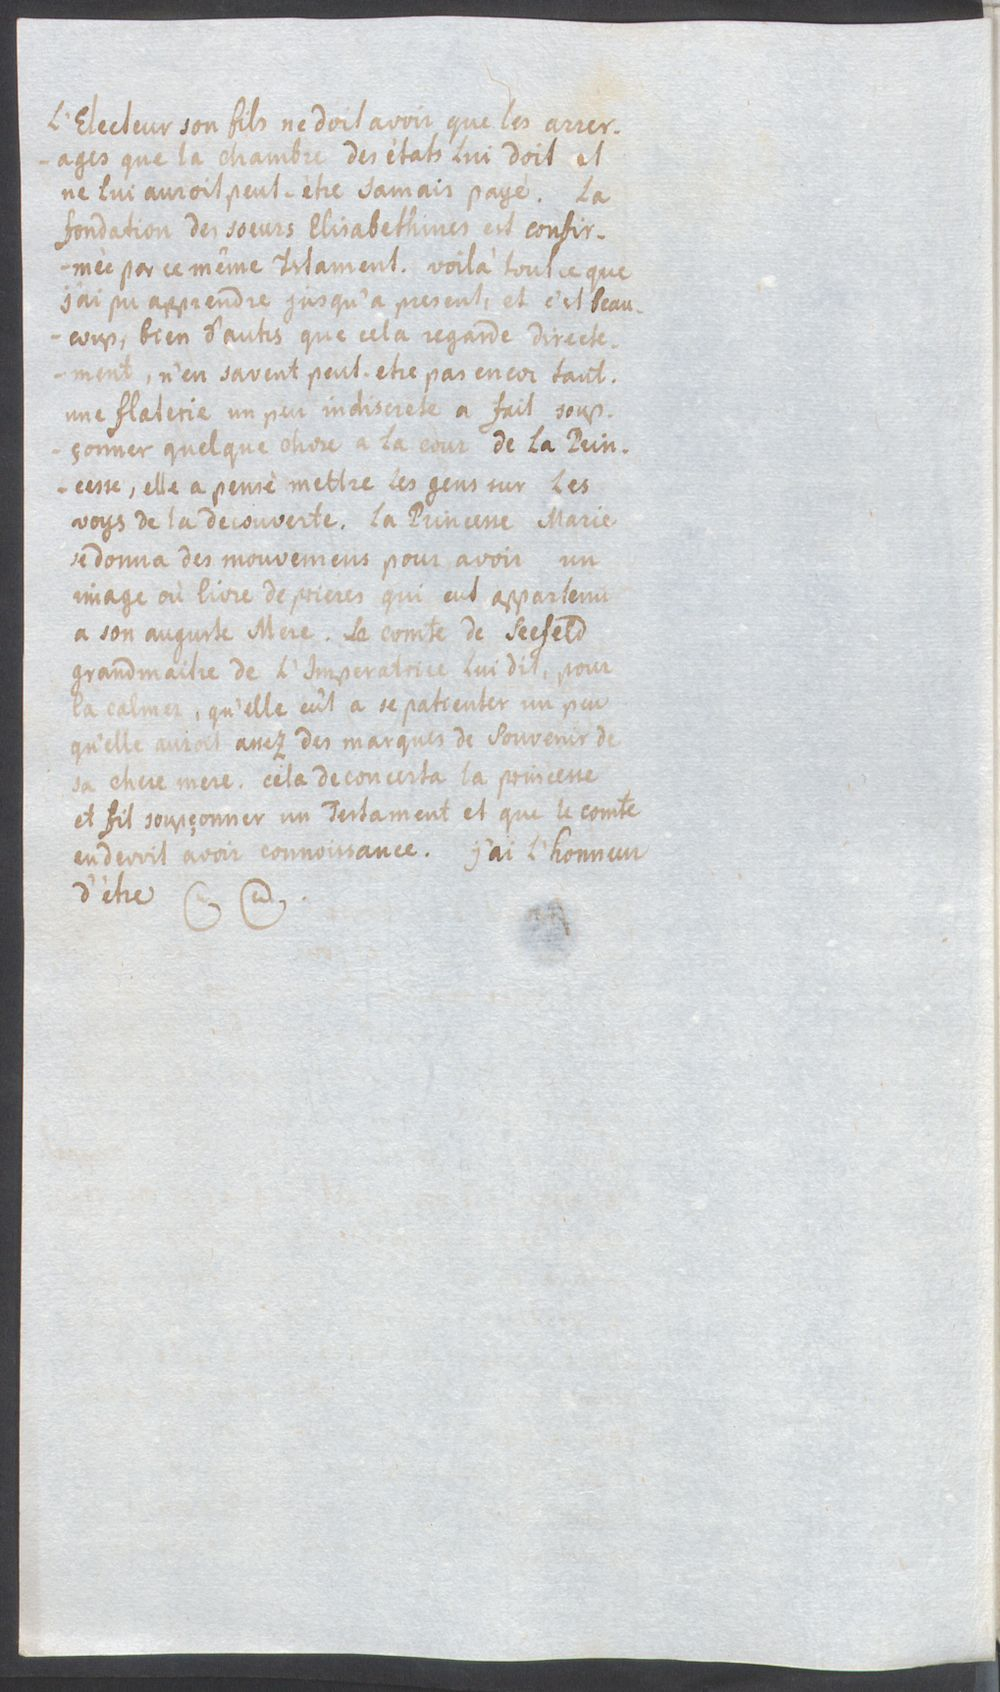 L'Electeur son fils ne doit avoir que les arrer-
-ages que la chambre des états lui doit et
ne lui auroit peut-être jamais payé. La
fondation des soeurs Elisabethines est confir-
-mée par ce même Testament. voilà tout ce que
j'ai pu apprendre jusqu'a present, et c'est beau-
-coup, bien d'autrs que cela regarde directe-
-ment, n'en savent peut-etre pas encor tant.
une flaterie un peu indiscrete a fait soup-
-çonner quelque chose a la cour de la Prin-
-cesse, elle a pensé mettre les gens sur les
voys de la decouverte. la Princesse Marie
se donna des mouvemens pour avoir un
image où livre de prieres qui eut appartenu
a son auguste Mere. Le comte de Seefeld
grandmaitre de L'Imperatrice lui dit, pour
la calmer, qu'elle eût a se patienter un peu
qu'elle auroit assez des marques de Souvenir de
sa chere mere. cela deconcerta la princesse
et fit soupçonner un Testament et que le comte
en devoit avoir connoissance. j'ai L'honneur
d'être